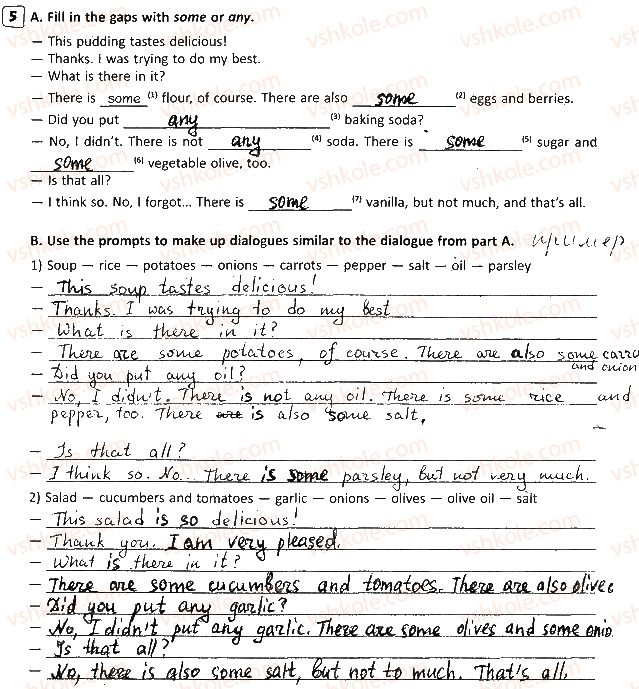 5 A. Fill in the gaps with some or any.
— This pudding tastes delicious!
— Thanks. I was trying to do my best.
— What is there in it?
— There is some (1) flour, of course. There are also some (2) eggs and berries.
— Did you put any (3) baking soda?
— No, I didn't. There is not any (4) soda. There is some (5) sugar and
some (6) vegetable olive, too.
— Is that all?
— I think so. No, I forgot... There is some (7) vanilla, but not much, and that's all.
B. Use the prompts to make up dialogues similar to the dialogue from part A. пример
1) Soup — rice — potatoes — onions — carrots — pepper — salt — oil — parsley
— This soup tastes delicious!
— Thanks. I was trying to do my best
— What is there in it?
— There are some potatoes, of course. There are also some carro
and onion
— Did you put any oil?
— No, I didn't. There is not any oil. There is some rice and
pepper, too. There are is also some salt,
— Is that all?
— I think so. No... There is some parsley, but not very much.
2) Salad — cucumbers and tomatoes — garlic — onions — olives — olive oil — salt
— This salad is so delicious!
— Thank you. I am very pleased.
— What is there in it?
— There are some cucumbers and tomatoes. There are also olives
— Did you put any garlic?
— No, I didn't put any garlic. There are some olives and some onio
— Is that all?
— No, there is also some salt, but not to much. That's all.